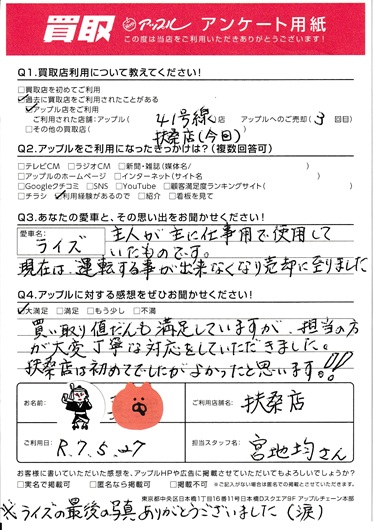 買取 アップル アンケート用紙
この度は当店をご利用いただきありがとうございます!
Q1.買取店利用について教えてください!
□買取店を初めてご利用
☑過去に買取店をご利用されたことがある
☑アップル店をご利用
ご利用された店舗:アップル( 41号線 店 アップルへのご売却( 3 回目)
□その他の買取店( 扶桑店(今回)
Q2.アップルをご利用になったきっかけは?(複数回答可)
□テレビCM □ラジオCM □新聞・雑誌(媒体名/ )
□アップルのホームページ □インターネット(サイト名 )
□Googleクチコミ □SNS □YouTube □顧客満足度ランキングサイト( )
□チラシ ☑利用経験があるので □紹介 □看板を見て
Q3.あなたの愛車と、その思い出をお聞かせください!
愛車名: ライズ
主人が主に仕事用で使用して
いたものです。
現在は、運転する事が出来なくなり売却に至りました
Q4.アップルに対する感想をぜひお聞かせください!
☑大満足 □満足 □もう少し □不満
買い取り値だんも満足していますが、担当の方
が大変丁寧な対応をしていただきました。
扶桑店は初めてでしたがよかったと思います。!!
お名前:
ご利用店舗名: 扶桑店
ご利用日: R.7.5.27
担当スタッフ名: 宮地均さん
お客様に書いていただいた感想を、アップルHPや広告に掲載させていただいてもよろしいでしょうか?
□実名で掲載可 □匿名なら掲載可 □掲載不可 ※ご記入がない場合は匿名での掲載とさせていただきます。
東京都中央区日本橋1丁目16番11号日本橋Dスクエア9F アップルチェーン本部
※ライズの最後の写真ありがとうございました(涙)